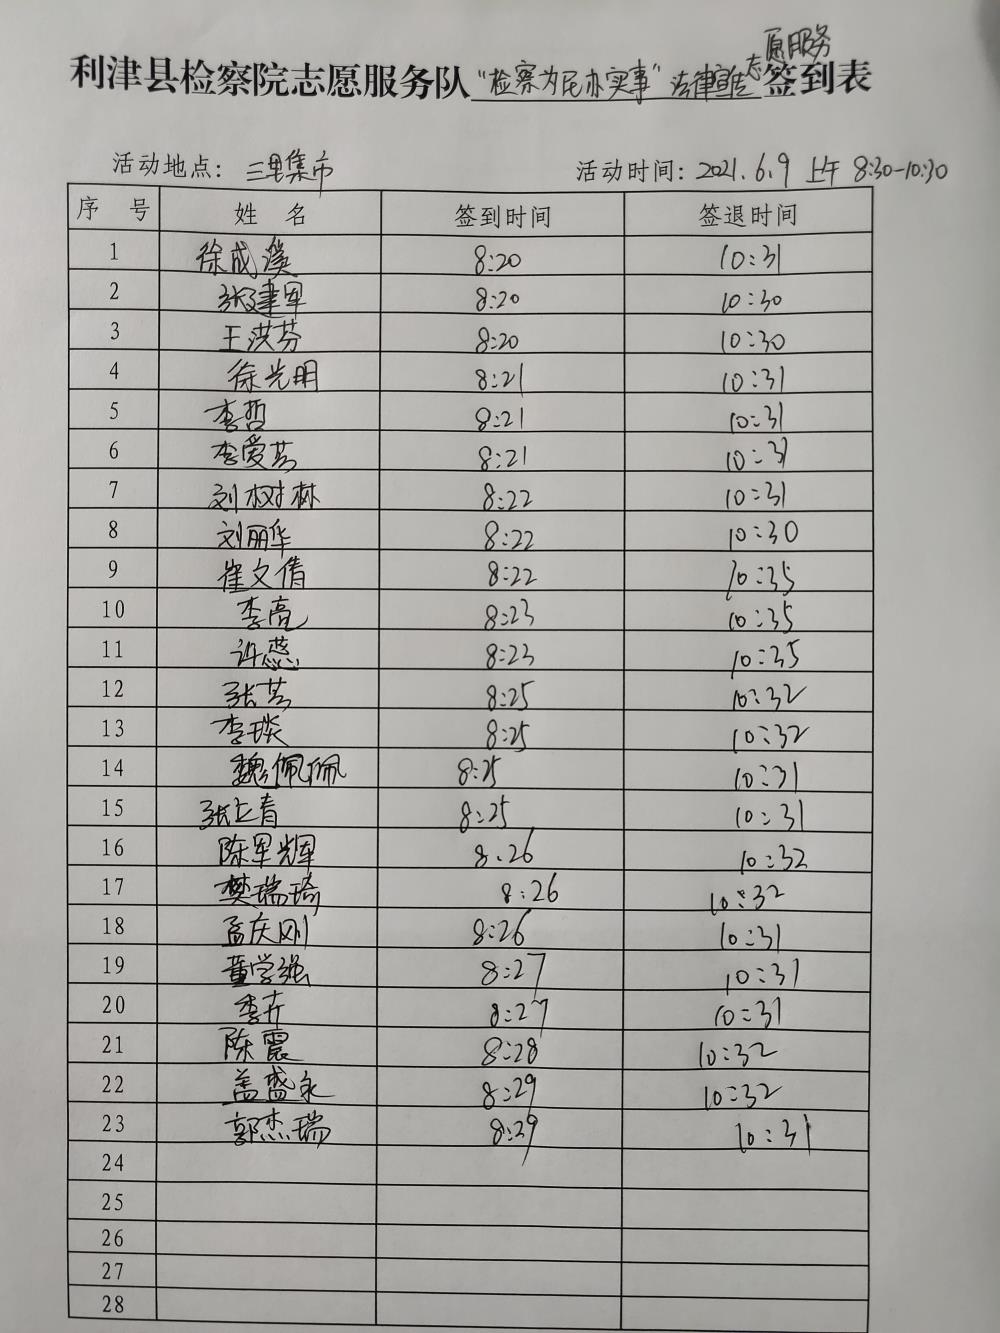 愿服务
利津县检察院志愿服务队"检察为民办实事"法律宣传志签到表
活动地点: 三里集市 活动时间: 2021.6.9 上午 8:30-10:30
序 号 姓 名 签到时间 签退时间
1 徐成溪 8:20 10:31
2 张建军 8:20 10:30
3 王洪芬 8:20 10:30
4 徐光明 8:21 10:31
5 李哲 8:21 10:31
6 李爱芳 8:21 10:31
7 刘树林 8:22 10:31
8 刘丽华 8:22 10:30
9 崔文倩 8:22 10:35
10 李亮 8:23 10:35
11 许蕊 8:23 10:35
12 张芳 8:25 10:32
13 李琰 8:25 10:32
14 魏佩佩 8:25 10:31
15 8:25 10:31
16 陈军辉 8.26 10:32
17 樊瑞琦 8:26 10:32
18 孟庆刚 8:26 10:31
19 董学强 8:27 10:31
20 李卉 8:27 10:31
21 陈震 8:28 10:32
22 盖盛永 8:29 10:32
23 郭杰瑞 8:29 10:31
24
25
26
27
28